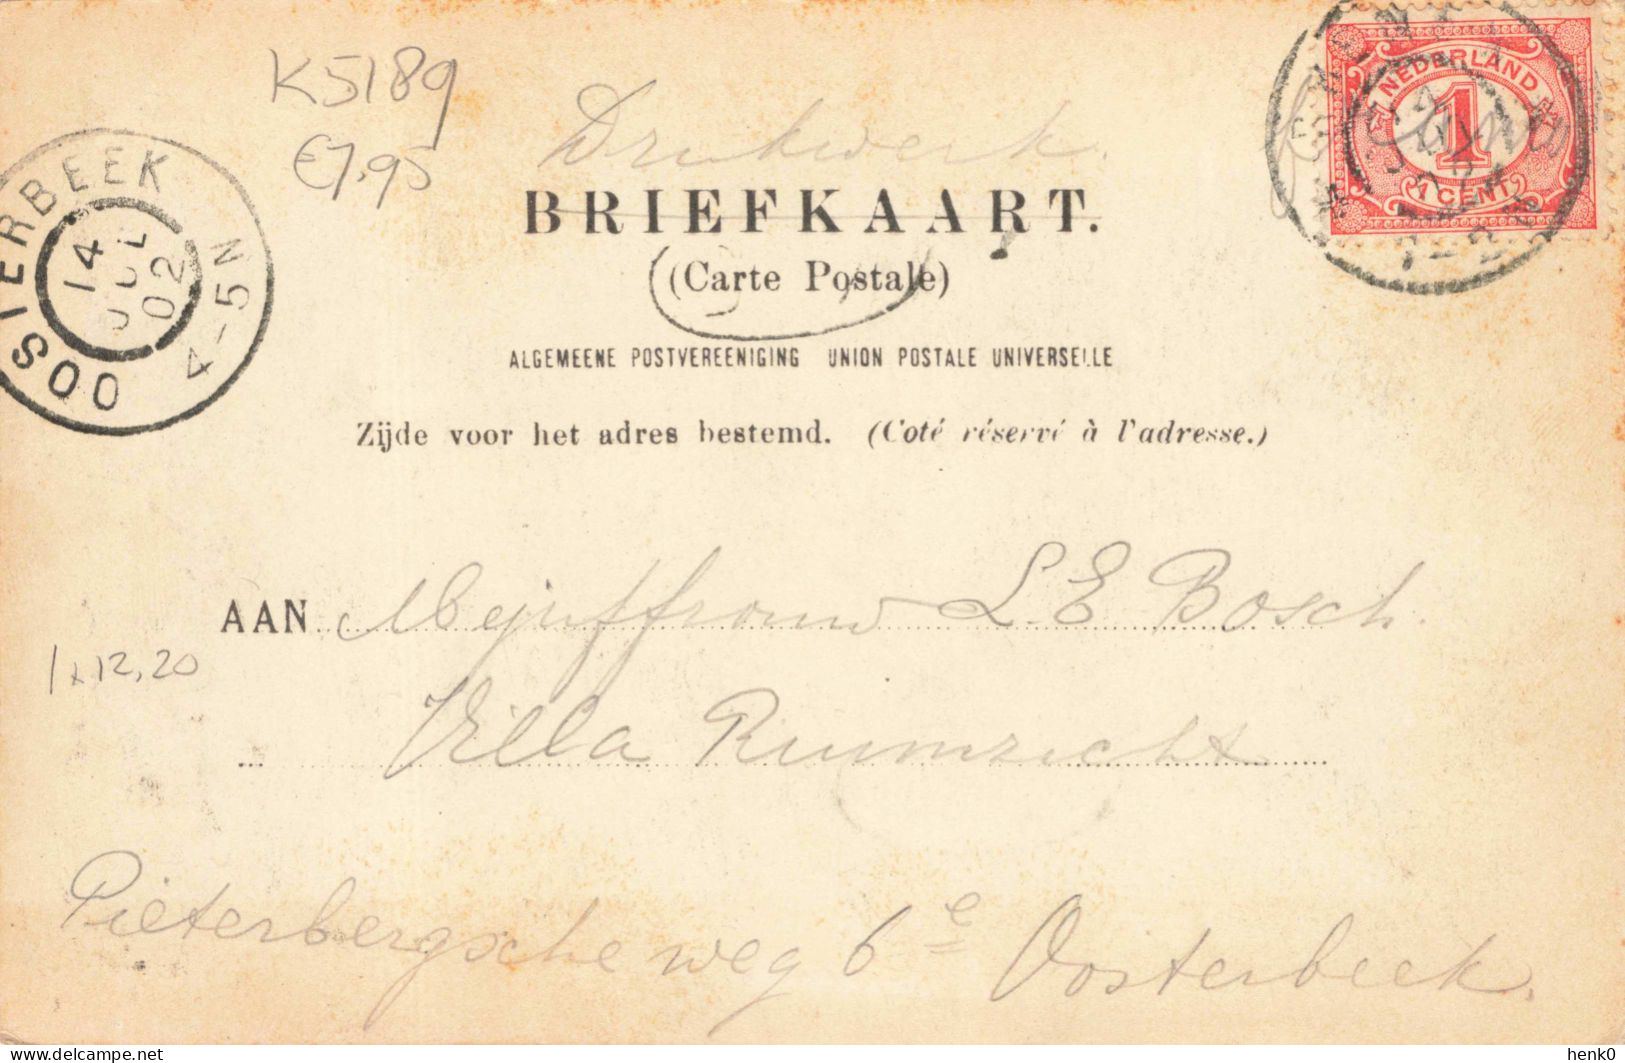 K5189
€7,95
Drukwerk.
BRIEFKAART.
(Carte Postale)
ALGEMEENE POSTVEREENIGING UNION POSTALE UNIVERSELLE
Zijde voor het adres bestemd. (Coté réservé à l'adresse.)
NEDERLAND
1
1 CENT
OOSTERBEEK
14
JUL
02
4-5N
AAN Mejuffrouw L.E Bosch.
1x12,20
Villa Ruimzicht
Pietersbergsche weg 6e Oosterbeek.
henk0